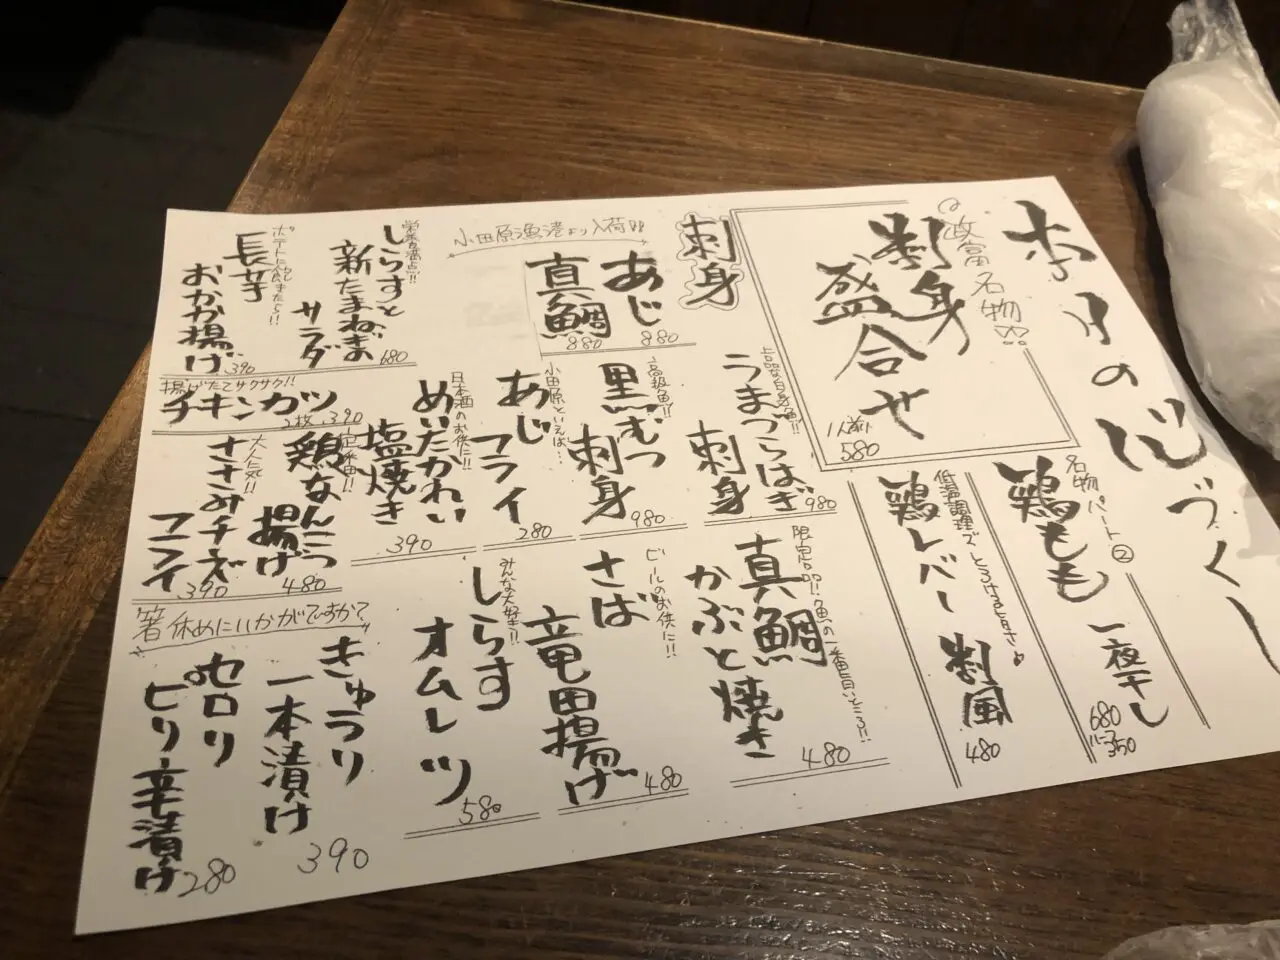 本日の心づくし
政富名物
刺身
盛合せ
1人前
580
名物パート②
鶏もも一夜干し
680
ハーフ
350
低温調理でとろける旨さ♪
鶏レバー刺風
480
刺身
小田原漁港より入荷!!
あじ
880
真鯛
880
上品な白身魚!!
うまづらはぎ
刺身
980
高級魚!!
黒むつ
刺身
980
小田原といえば…
あじ
フライ
280
日本酒のお供に!!
めいたかれい
塩焼き
390
限定品!!魚の一番旨いところ!!
真鯛
かぶと焼き
480
ビールのお供に!!
さば
竜田揚げ
480
みんな大好き!!
しらす
オムレツ
580
栄養満点!!
しらすと
新たまねぎの
サラダ
680
ポテトに飽きたら!!
長芋
おかか揚げ
390
揚げたてサクサク!!
チキンカツ
2枚 390
鶏なんこつ
揚げ
480
大人気!!
ささみチーズ
フライ
390
箸休めにいかがですか?
きゅうり
一本漬け
390
セロリ
ピリ辛漬け
280